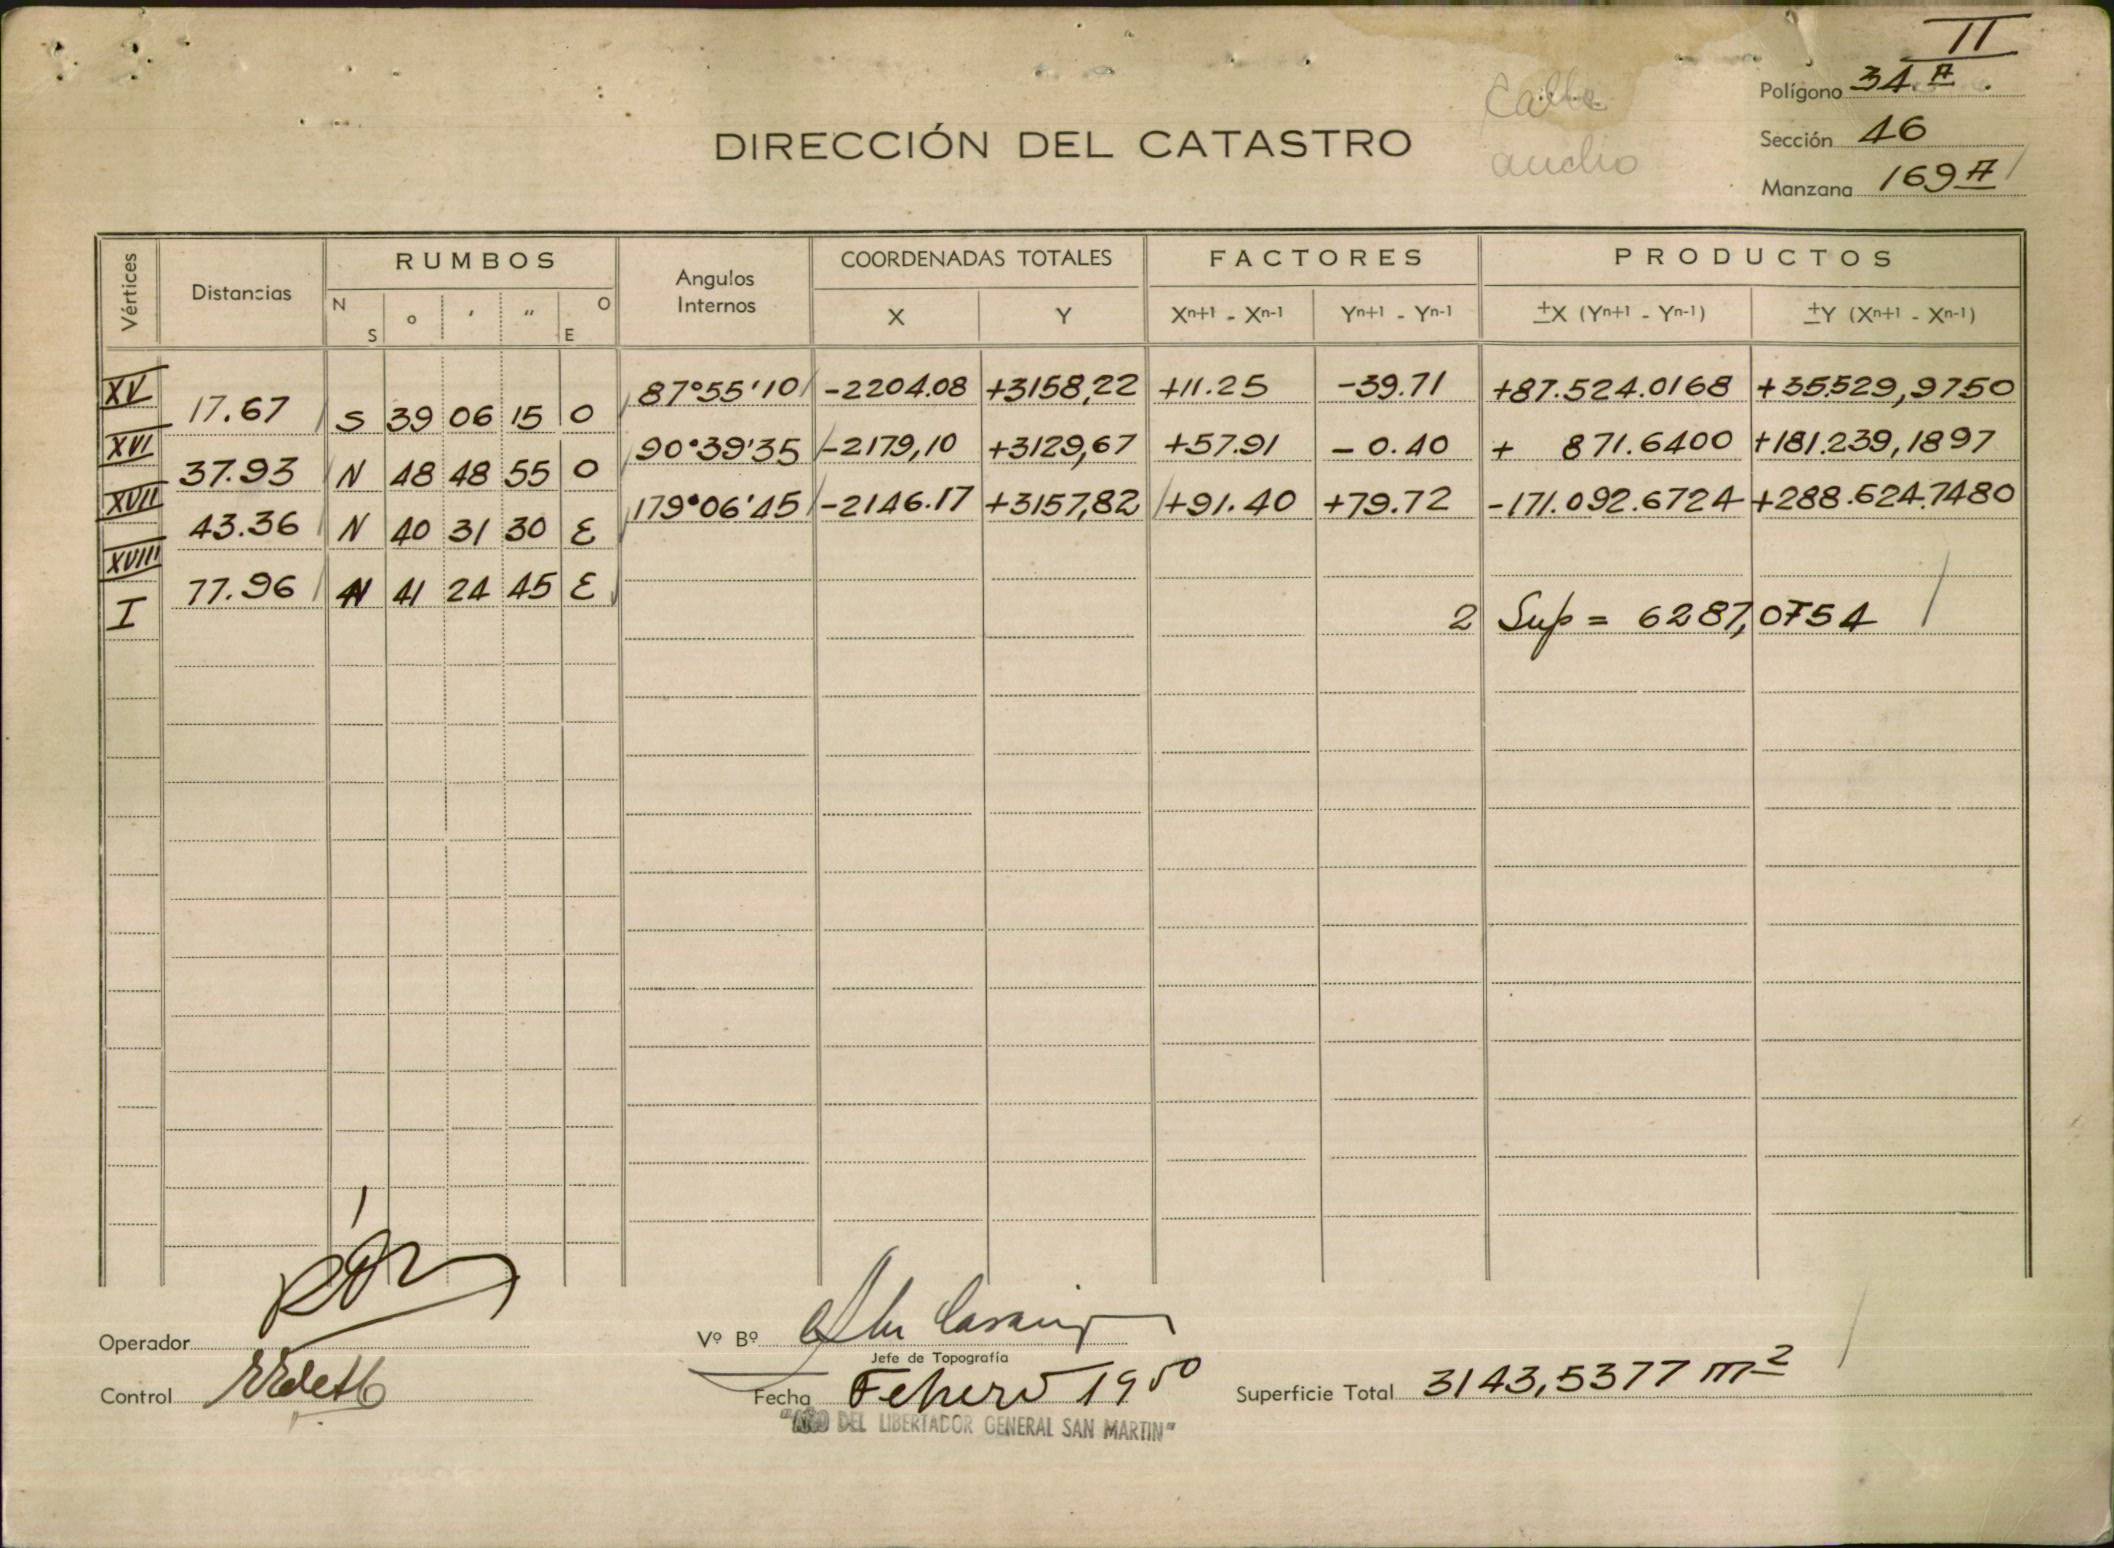 II
Polígono 34 A.
Calle
DIRECCIÓN DEL CATASTRO
Sección 46
ancho
Manzana 169 A
Vértices
Distancias
RUMBOS
Angulos Internos
COORDENADAS TOTALES
FACTORES
PRODUCTOS
N S ° ' " O E
X Y
Xn+1 - Xn-1 Yn+1 - Yn-1
±X (Yn+1 - Yn-1) ±Y (Xn+1 - Xn-1)
XV 87°55'10 -2204.08 +3158,22 +11.25 -39.71 +87.524.0168 +35529,9750
17.67 S 39 06 15 O
XVI 90°39'35 -2179,10 +3129,67 +57.91 -0.40 + 871.6400 +181.239,1897
37.93 N 48 48 55 O
XVII 179°06'45 -2146.17 +3157,82 +91.40 +79.72 -171.092.6724 +288.624.7480
43.36 N 40 31 30 E
XVIII
77.96 N 41 24 45 E
I 2 Sup = 6287,0754
Operador
Vº Bº
Jefe de Topografía
Control
Fecha Febrero 1950
Superficie Total 3143,5377 m2
"AÑO DEL LIBERTADOR GENERAL SAN MARTIN"